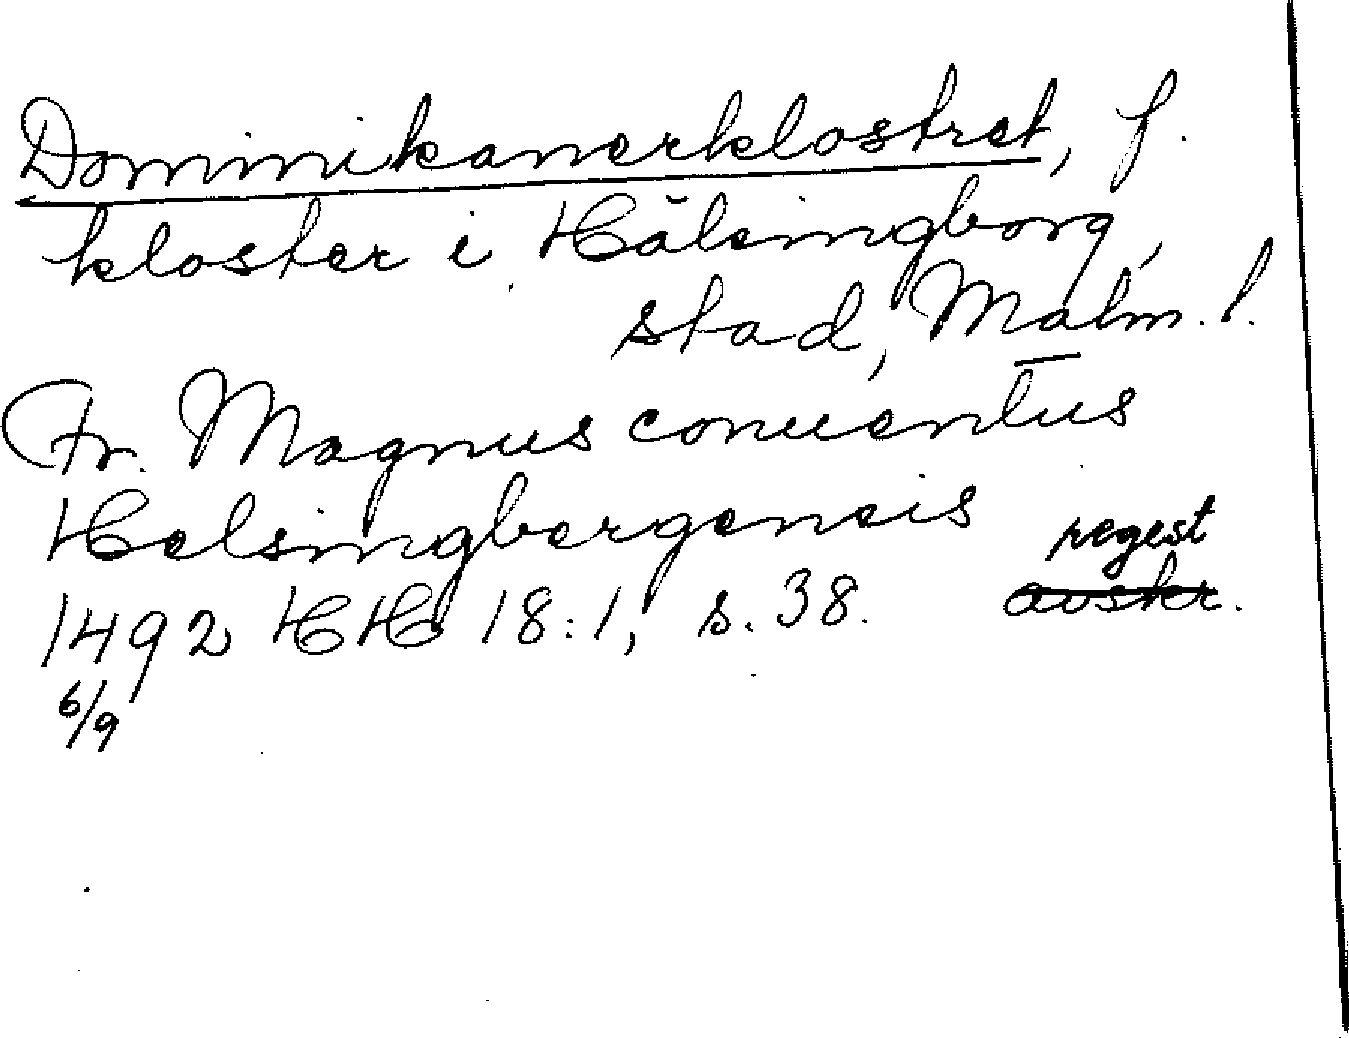 Dominikanerklostret, f.
kloster i Hälsingborg,
stad, Malm. l.
Fr. Magnus conuentus
Helsingbergensis
regest
1492 HH 18:1, s. 38. avskr.
6/9